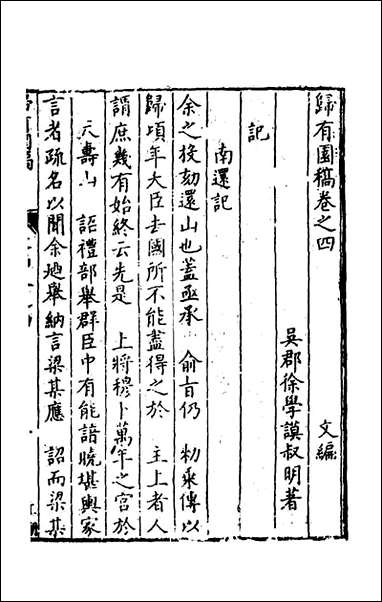 歸有園稿卷之四　文編
吳郡徐學謨叔明著
記
南還記
余之投劾還山也蓋亟承　俞旨仍　勑乘傳以
歸頃年大臣去國所不能盡得之於　主上者人
謂庶幾有始終云先是　上將穆卜萬年之宮於
天壽山　詔禮部舉群臣中有能諳曉堪輿家
言者疏名以聞余迺舉納言梁某應　詔而梁某